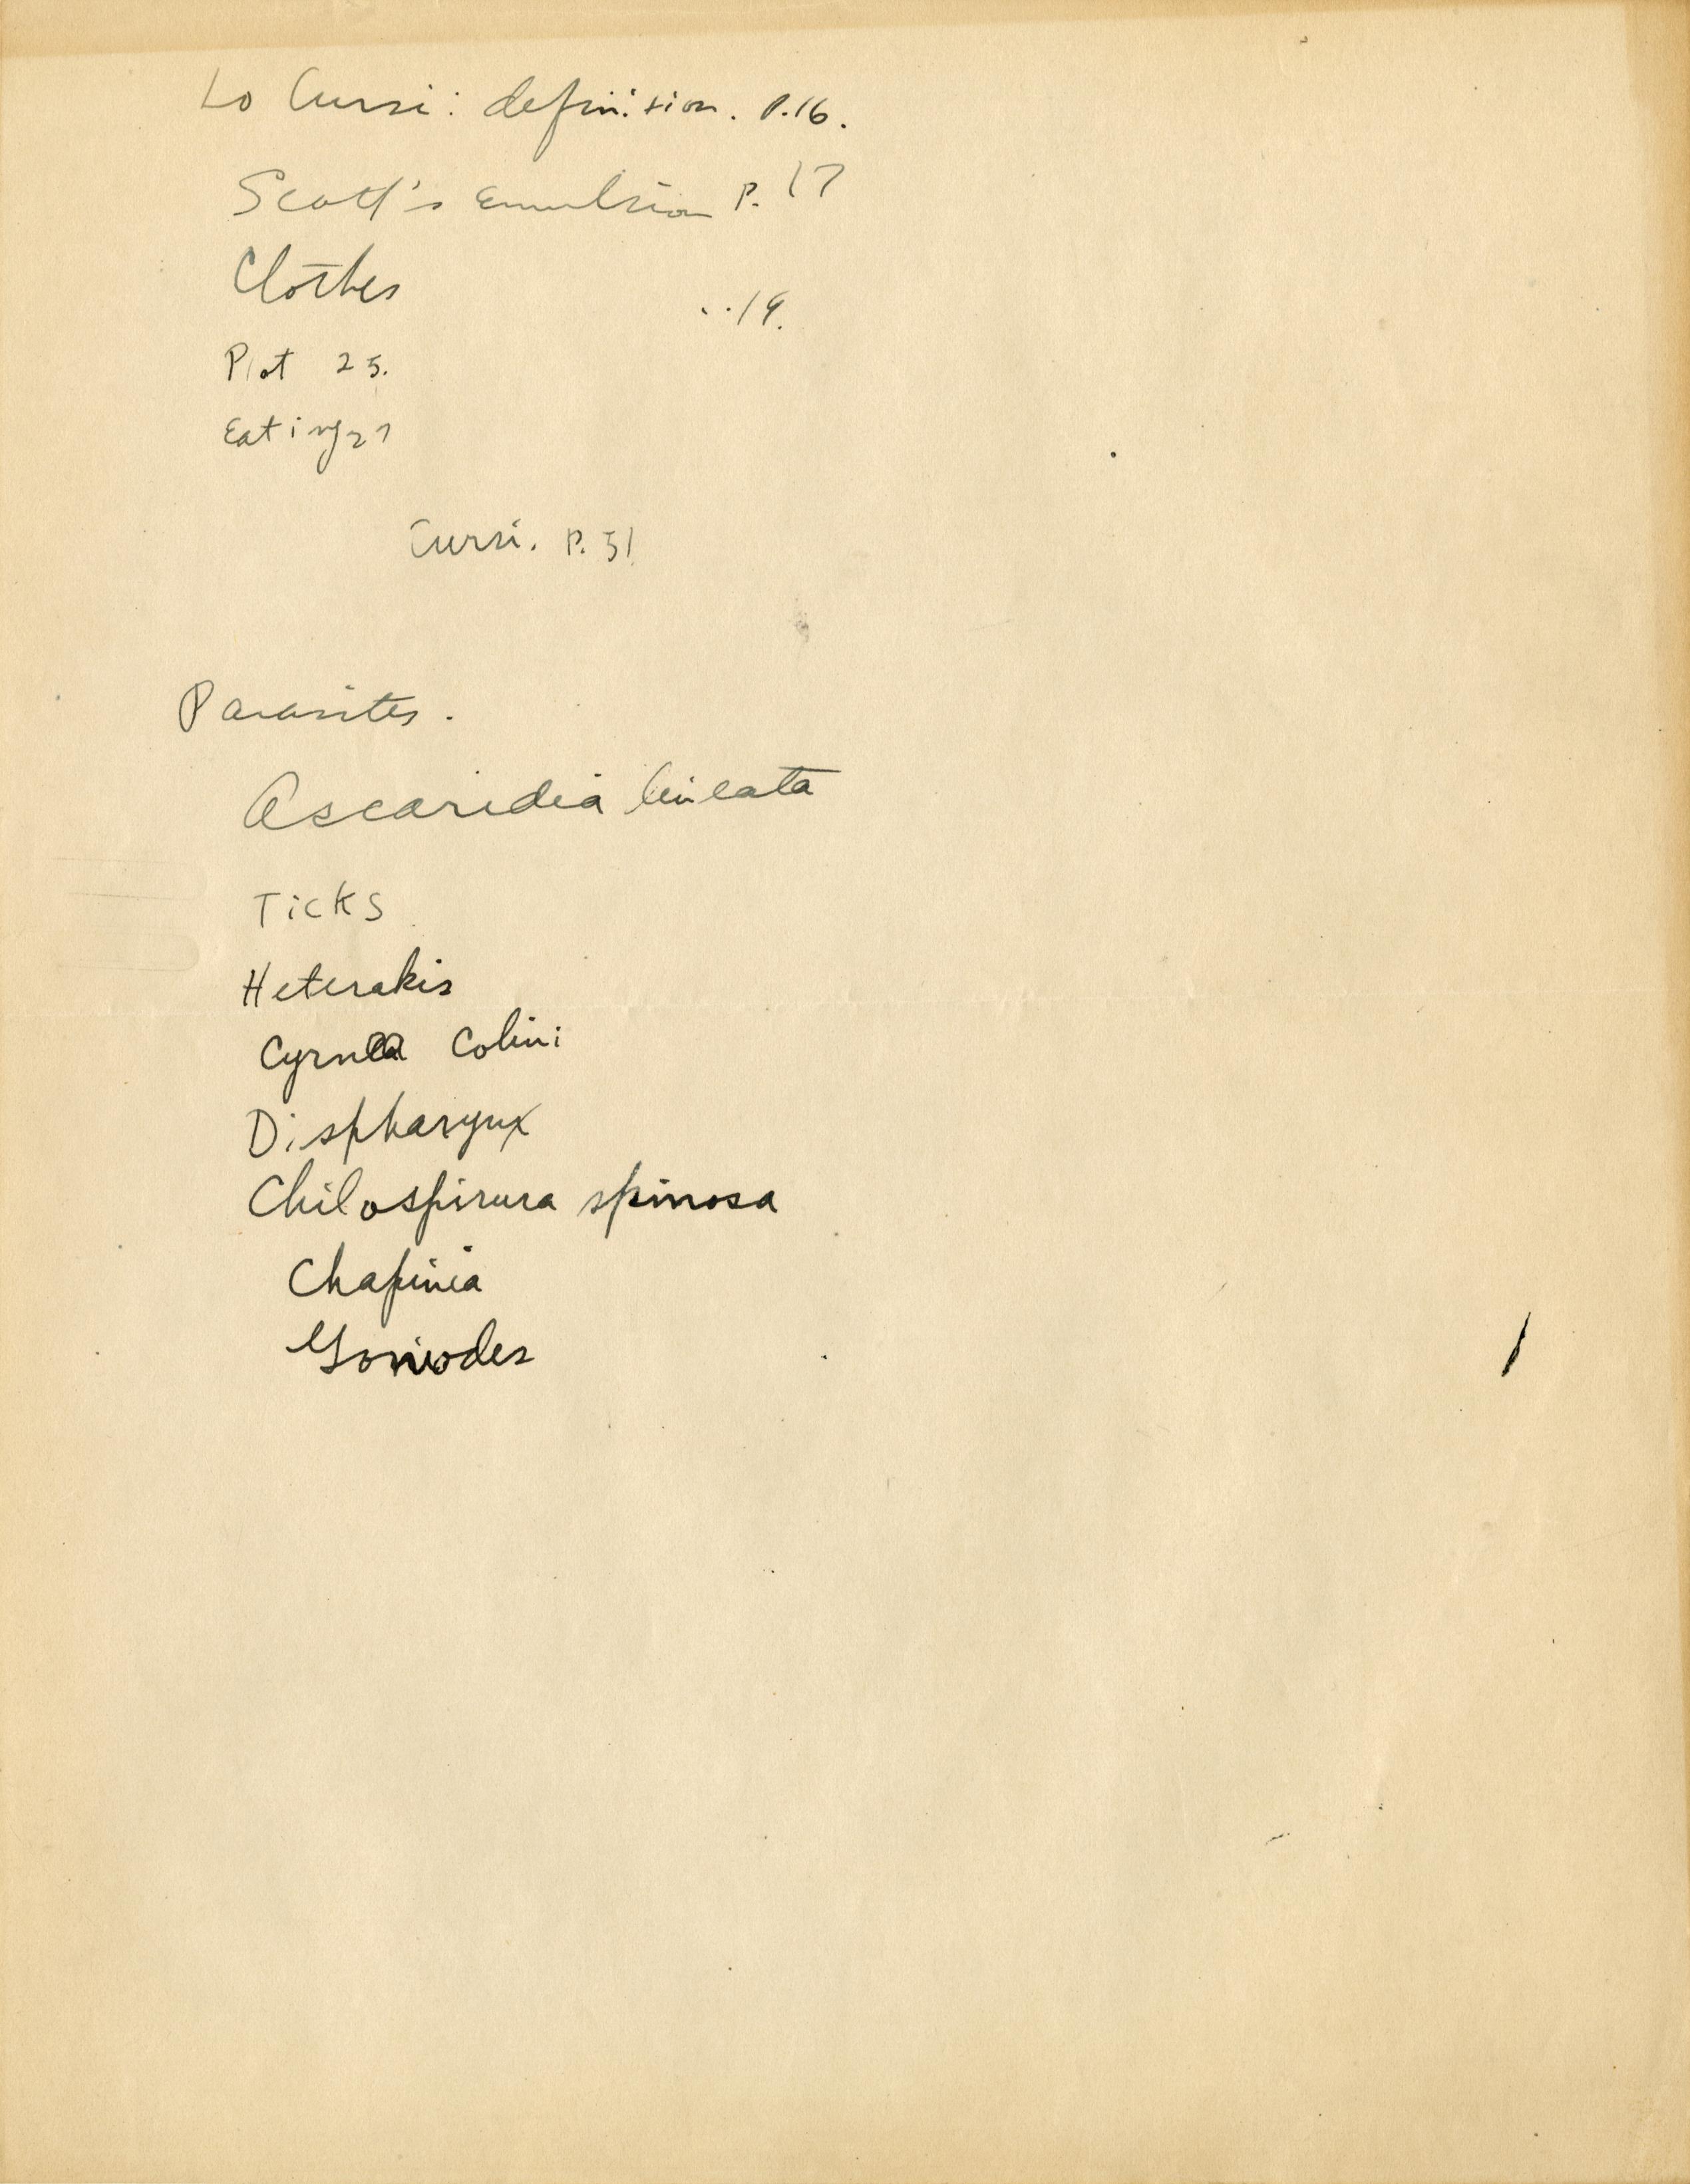 Lo Cursi: definition. P.16.
Scott's Emulsion P. 17
Clothes
" 19.
Plot 25.
Eating 27
Cursi. P. 51
Parasites.
Ascaridia lineata
Ticks
Heterakis
Cyrnea Colini
Dispharynx
Chilospirura spinosa
Chapinia
Goniodes